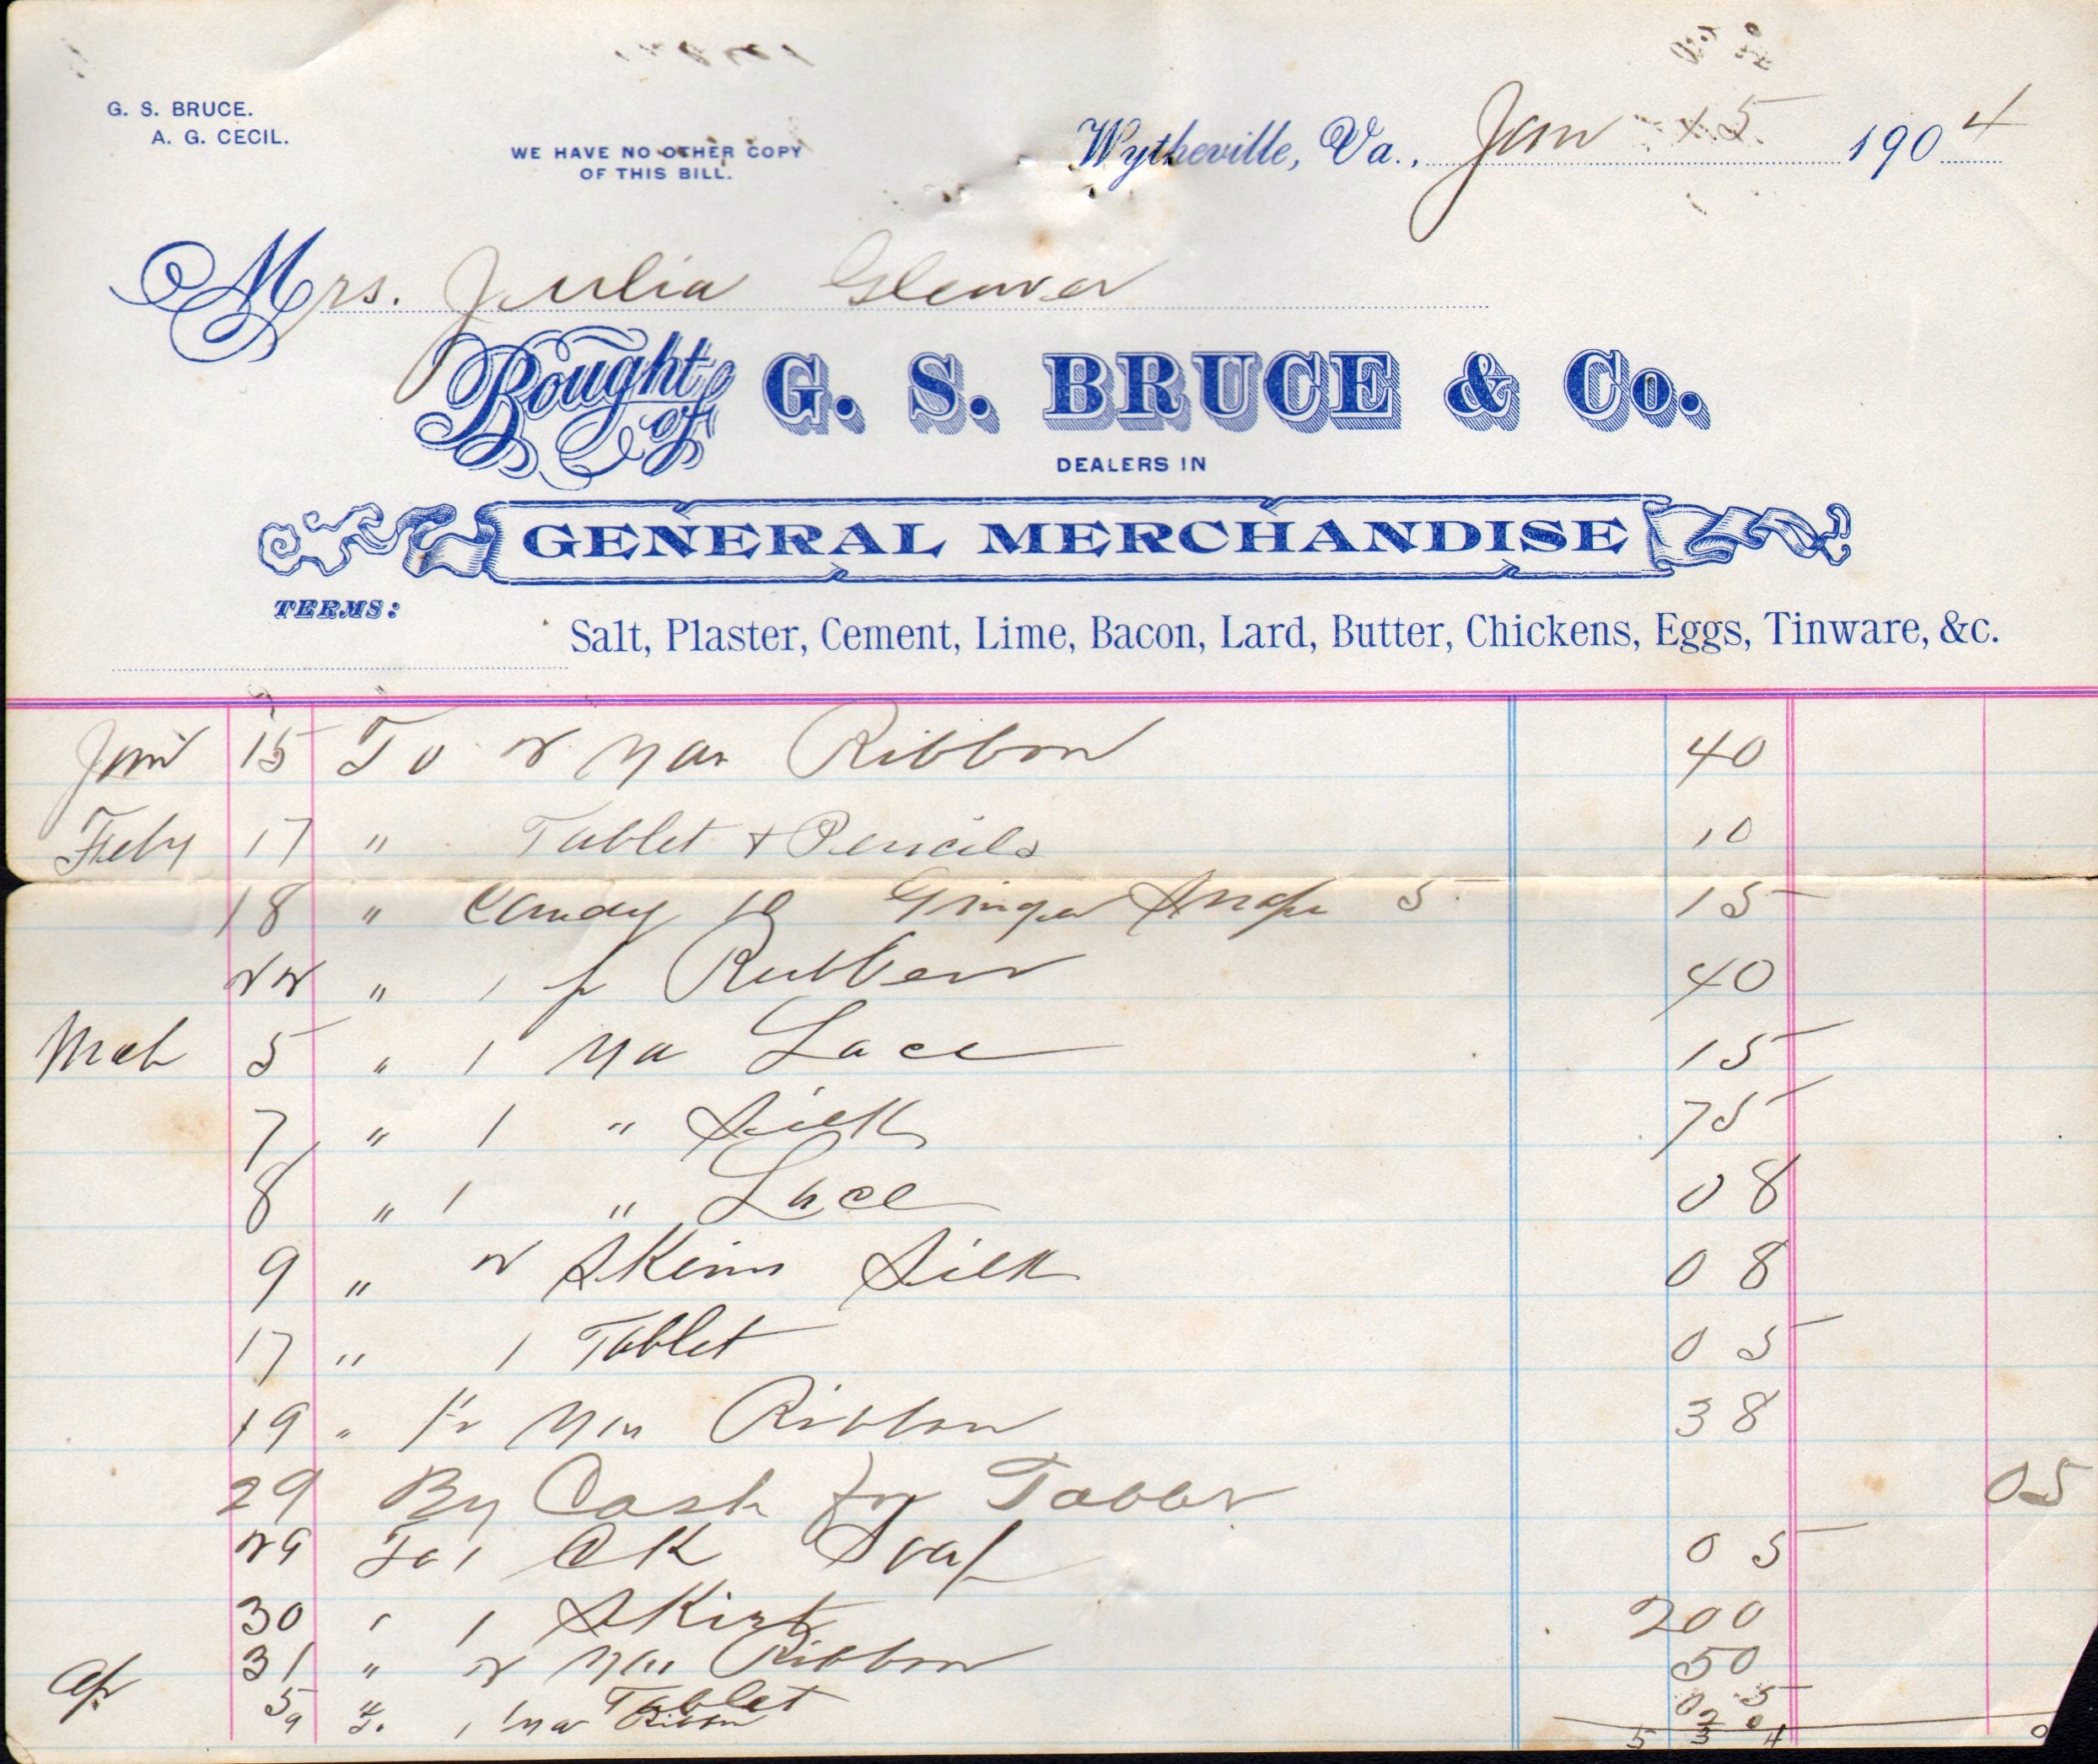 G. S. BRUCE.
A. G. CECIL.
WE HAVE NO OTHER COPY
OF THIS BILL.
Wytheville, Va., Jan 15 1904
Mrs. Julia Gleaver
Bought of G. S. BRUCE & Co.
DEALERS IN
GENERAL MERCHANDISE
TERMS:
Salt, Plaster, Cement, Lime, Bacon, Lard, Butter, Chickens, Eggs, Tinware, &c.
Jan 15 To 2 Ribbon 40
Feby 17 " Tablet + Pencils 10
18 " Candy 10 Ginger Snaps 5 15
22 " 1 pr Rubbers 40
Mch 5 " 1 Yd Lace 15
7 " 1 " Silk 75
8 " 1 " Lace 08
9 " 2 Skeins Silk 08
17 " 1 Tablet 05
19 " Ribbon 38
29 By Cash for 05
29 To 1 CK Soap 05
30 " 1 Skirt 200
31 " 2 Ribbon 50
Ap 5 " Tablet 05
9 " 1 Yd Ribbon 20
5 34 0